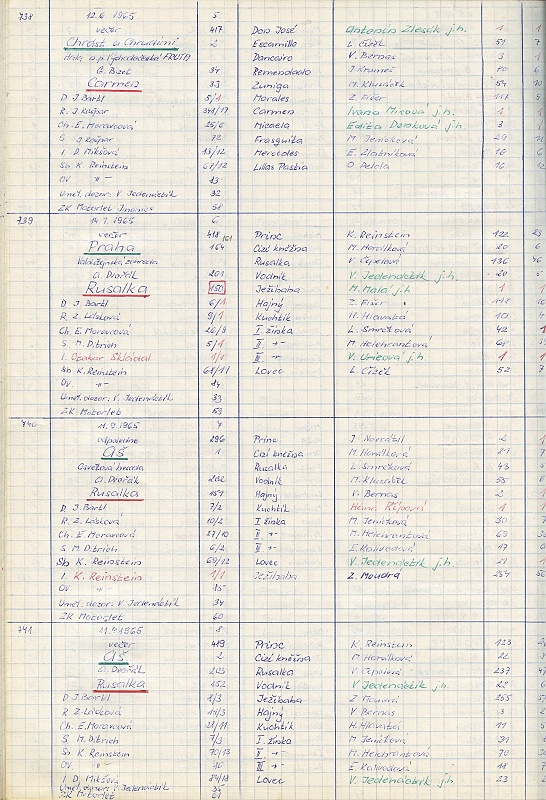 738 12.6.1965 5
večer 417 Don José Antonín Zlesák j.h. 1 1
Chrást u Chrudimi 2 Escamillo L. Čížek 51 7
Dancairo V. Bernas 3 1
G. Bizet 34 Remendado 6
Carmen 33 Zuniga M. Klusáček 54 10
D J. Bartl 5/1 Morales Z. Fišer 117 5
R. J. Kašpar Carmen j.h. 1 1
Ch. E. Moravcová 25/6 Micaela j.h. 3 1
S J. Kašpar 72 Frasquita M. Jeníčková 29
I D. Mikšová 13/12 Mercedes E. Zlatníková 16 6
Sb K. Reinstein 67/12 Lillas Pastia O Pelcla 16 12
OV -"- 13
Uměl. dozor: V. Jedenáctík 32
ZK Motorlet Jinonice 58
739 14.7.1965 6
večer 418 Princ K. Reinstein 122 23
Praha 164 Cizí kněžna M. Horálková 20 6
Valdštejnská zahrada Rusalka V. Cepelová 136 46
A. Dvořák 201 Vodník V. Jedenáctík j.h. 20 5
Rusalka 150 Ježibaba M. Malá j.h 1 1
D J. Bartl 6/1 Hajný Z. Fišer 10
R Z. Lásková 9/1 Kuchtík H. Hlavatá 10 4
Ch. E. Moravcová 26/9 I žínka L. Smrčková 42 1
S M. Ditrich 5/1 II -"- M. Melchrantková 68
I. Otakar Skládal 1/1 III -"- j.h 1 1
Sb K. Reinstein 68/11 Lovec L. Čížek 52 7
OV -"- 14
Uměl. dozor: V. Jedenáctík 33
ZK Motorlet 59
740 11.9.1965 7
odpoledne 296 Princ J. Navrátil 2 1
Aš 1 Cizí kněžna M. Horálková 21 7
Osvětová beseda Rusalka L. Smrčková 43
A. Dvořák 202 Vodník M. Klusáček 55 6
Rusalka 151 Hajný V. Bernas 2 1
D J. Bartl 7/2 Kuchtík Hana Řípová 1 1
R. Z. Lásková 10/2 I žínka M. Jeníčková 30 7
Ch. E. Moravcová 27/10 II -"- M. Melchrantková 69
S M. Ditrich 6/2 III -"- E. Kalivodová 17
Sb K. Reinstein 69/12 Lovec V. Jedenáctík j.h 21 1
I K. Reinstein 1/1 Ježibaba Z. Moudrá 254 56
OV -"- 15
Uměl. dozor: V. Jedenáctík 34
ZK Motorlet 60
741 11.9.1965 8
večer 419 Princ K. Reinstein 123
Aš 2 Cizí kněžna M. Horálková 22
A. Dvořák 203 Rusalka V. Cepelová 237
Rusalka 152 Vodník V. Jedenáctík j.h. 22 6
D J. Bartl 8/3 Ježibaba Z. Moudrá 255
R Z. Lásková 11/3 Hajný V. Bernas 3
Ch. E. Moravcová 28/11 Kuchtík H. Hlavatá 11 5
S M. Ditrich 7/3 I. žínka M. Jeníčková 31
Sb K. Reinstein 70/13 II -"- M. Melchrantková 70
OV -"- 16 III -"- E. Kalivodová 18 7
I D. Mikšová Lovec V. Jedenáctík j.h 23 2
Uměl. dozor: V. Jedenáctík 35
ZK Motorlet 61